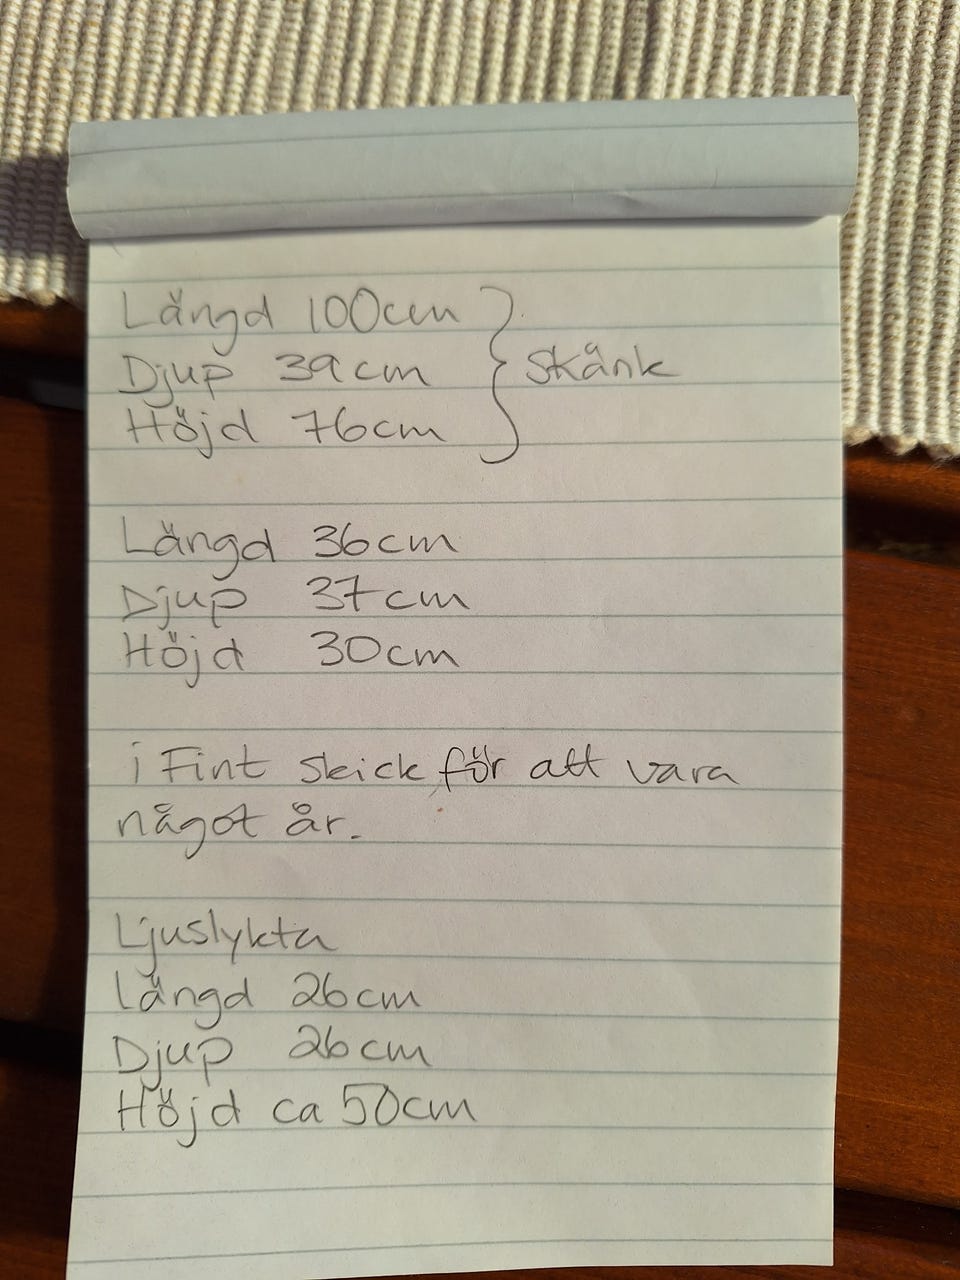 Längd 100cm } Skänk
Djup 39cm
Höjd 76cm
Längd 36cm
Djup 37cm
Höjd 30cm
i Fint skick för att vara
något år.
Ljuslykta
Längd 26cm
Djup 26cm
Höjd ca 50cm